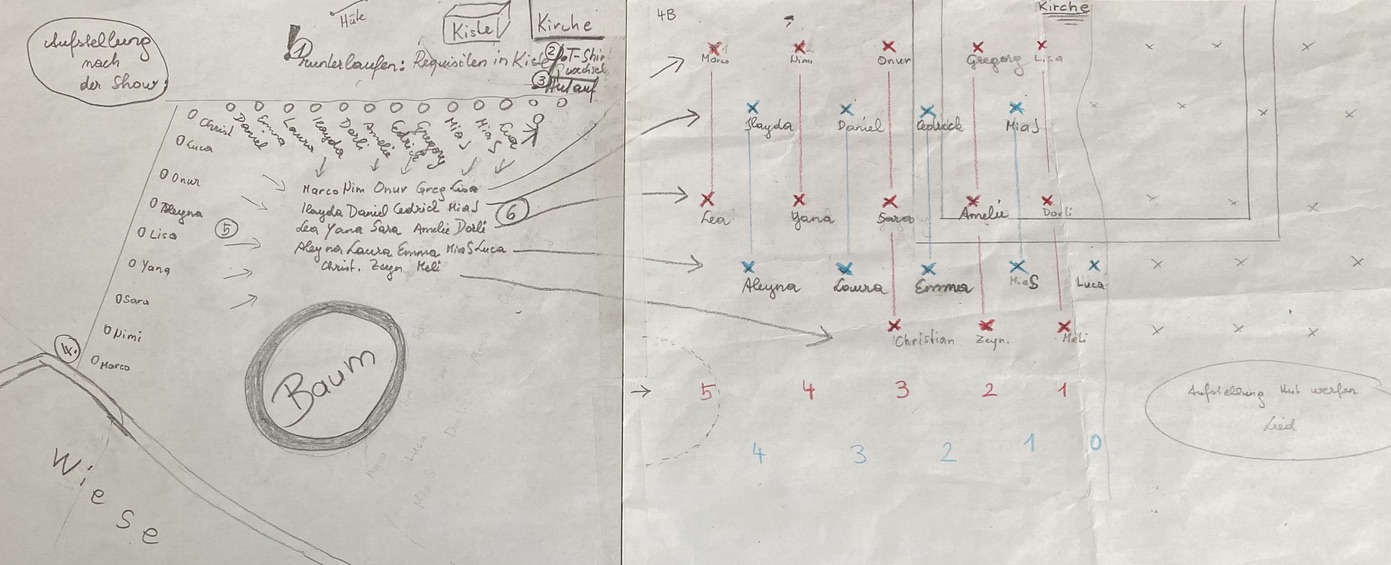 Aufstellung
nach
der Show:
Hüte
Kiste
Kirche
! Runterlaufen: Requisiten in Kiste
② T-Shirt
③
Christ
Daniel
Emma
Laura
Ilayda
Darli
Amelie
Cedrick
Gregory
MiaJ
MiaS
Lea
Luca
Onur
Aleyna
Lisa
Yana
Sara
Nimi
Marco
Marco Nim Onur Greg Lisa
Ilayda Daniel Cedrick MiaJ
Lea Yana Sara Amelie Darli
Aleyna Laura Emma MiaS Luca
Christ. Zeyn. Meli
⑤
⑥
Baum
Wiese
4B
Kirche
Marco Nimi Onur Gregory Lisa
Ilayda Daniel Cedrick MiaJ
Lea Yana Sara Amelie Darli
Aleyna Laura Emma MiaS Luca
Christian Zeyn. Meli
5 4 3 2 1
4 3 2 1 0
Aufstellung Hut werfen
Lied